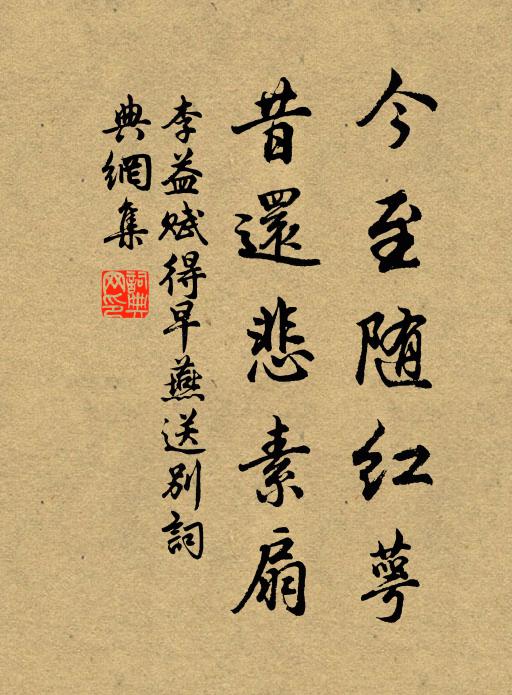 今至随紅萼
昔還悲素扇
李益赋得早燕送别詞
典網集
詞典
网印